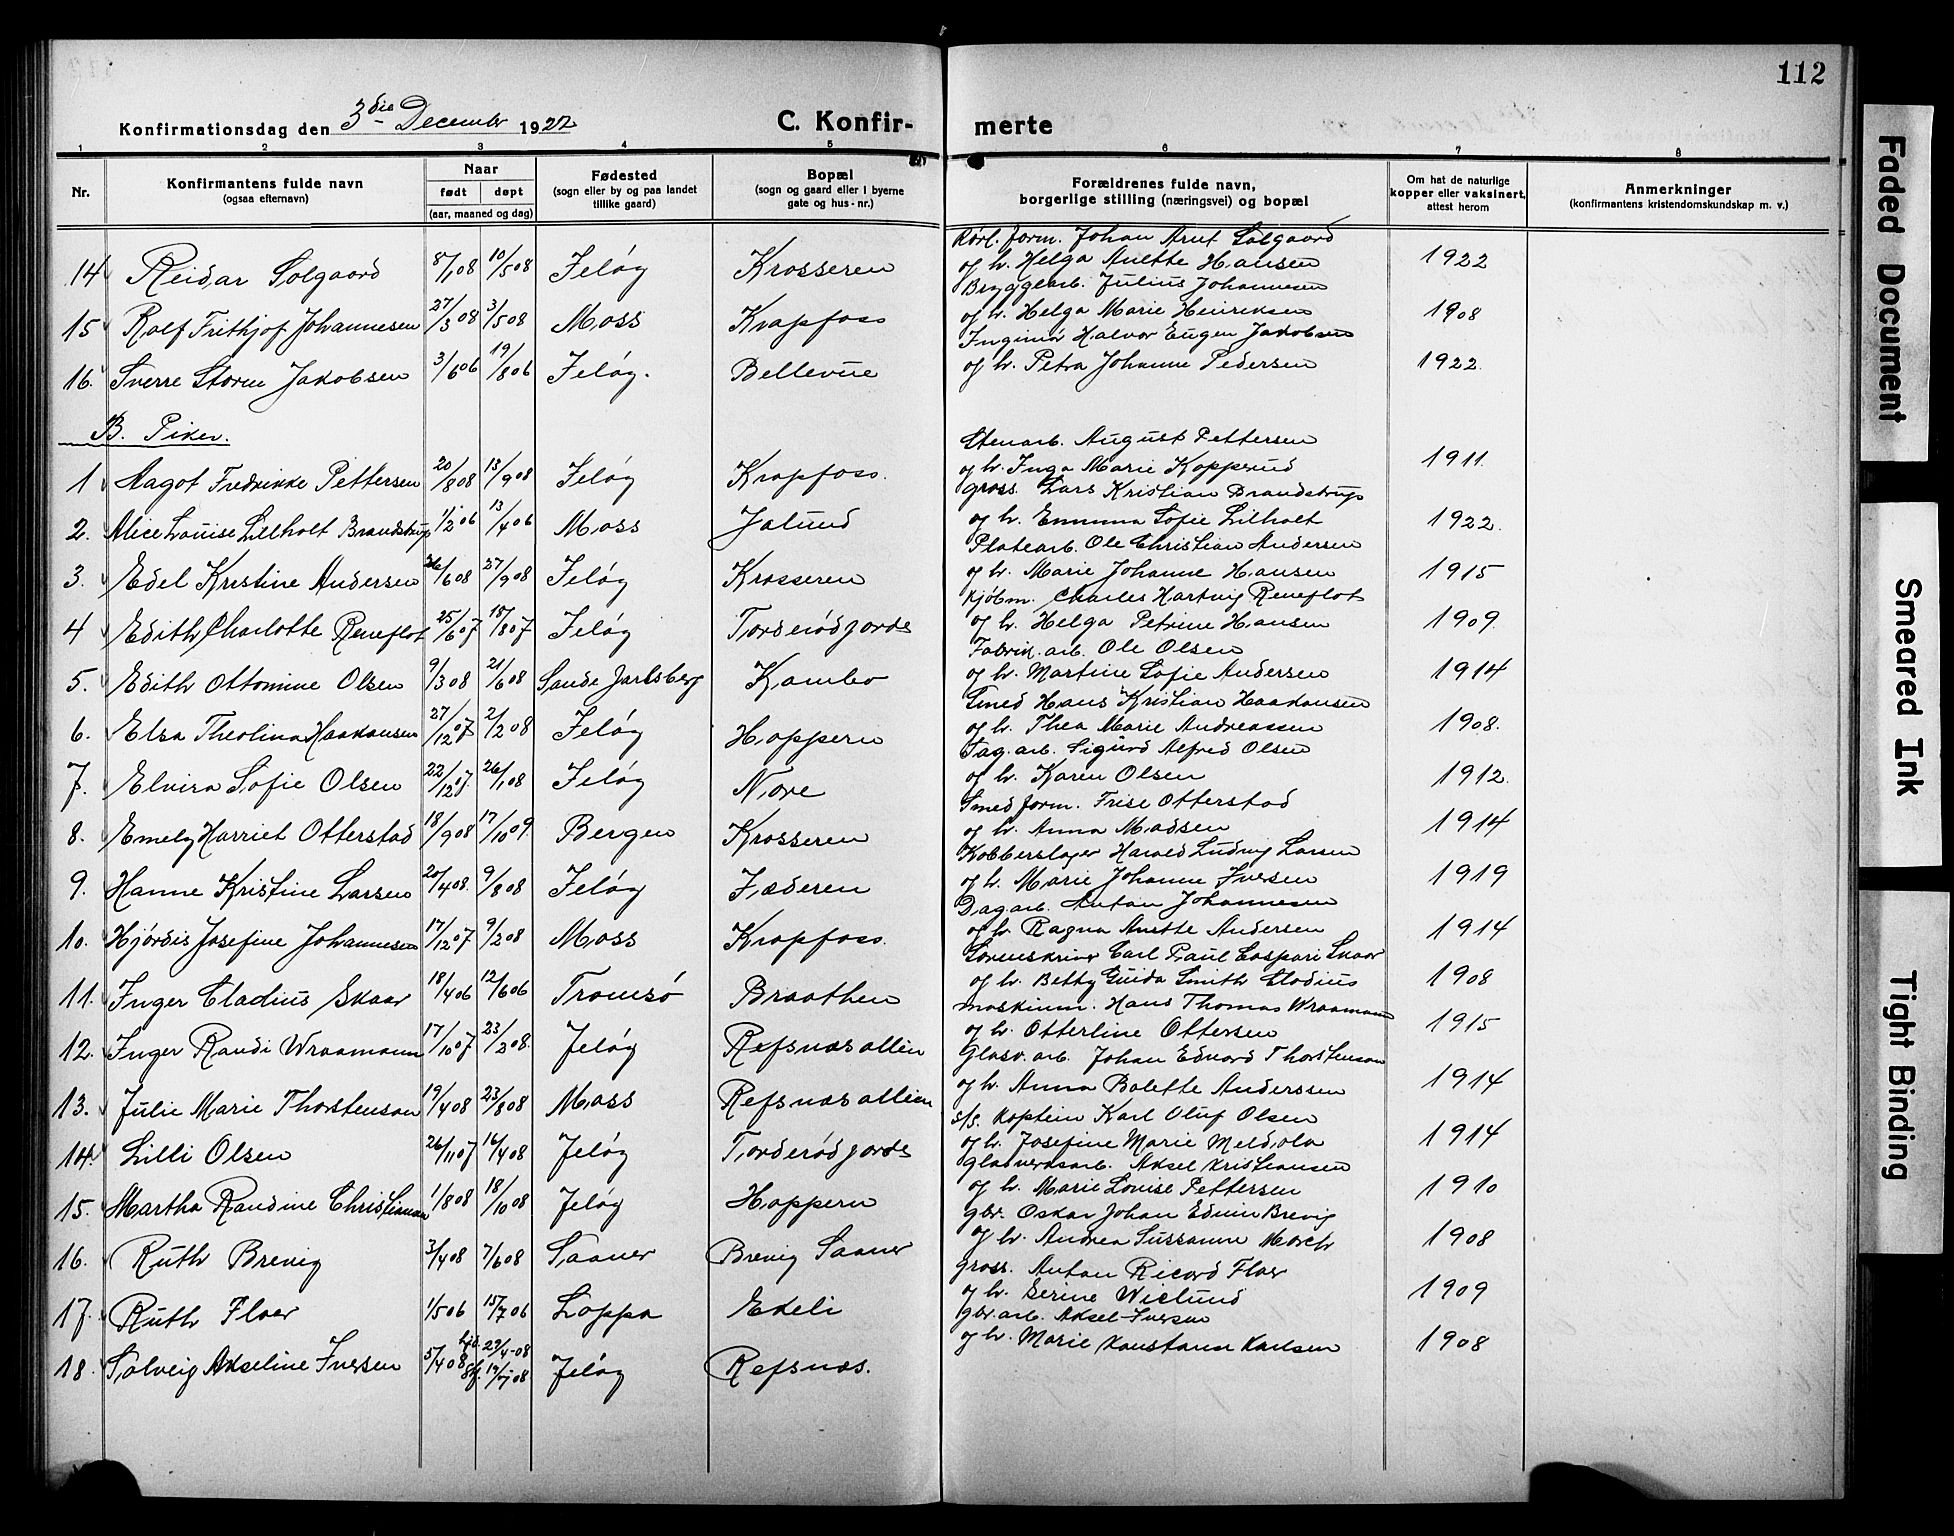 112
Konfirmationsdag den 3die December 1922 C. Konfirmerte
1 2 3 4 5 6 7 8
Nr. Konfirmantens fulde navn (ogsaa efternavn) Naar født døpt (aar, maaned og dag) Fødested (sogn eller by og paa landet tillike gaard) Bopæl (sogn og gaard eller i byerne gate og hus-nr.) Forældrenes fulde navn, borgerlige stilling (næringsvei) og bopæl Om hat de naturlige kopper eller vaksinert, attest herom Anmerkninger (konfirmantens kristendomskundskap m. v.)
Rørl. form. Johan Arnt Solgaard
14 Reidar Solgaard 8/1 08 10/5 08 Jeløy Krosseren og h. Helga Anette Hansen 1922
Bryggearb. Julius Johannesen
15 Rolf Frithjof Johannesen 27/3 08 3/5 08 Moss Krapfoss og h. Helga Marie Henriksen 1908
Ingeniør Halvor Eugen Jakobsen
16. Sverre Storm Jakobsen 3/6 06 19/8 06 Jeløy. Bellevue og h. Petra Johanne Pedersen 1922.
B. Piker.
Stenarb. August Pettersen
1 Aagot Fredrikke Pettersen 20/8 08 13/9 08 Jeløy Krapfoss. og h. Inga Marie Kopperud 1911.
Gross. Lars Kristian Brandstrup
2. Alice Louise Lillholt Brandstrup 1/2 06 13/4 06 Moss Jalund og h. Emma Sofie Lilholt 1922.
Platearb. Ole Christian Andersen
3. Edel Kristine Andersen 26/6 08 27/9 08 Jeløy Krosseren og h. Marie Johanne Hansen 1915
Kjøbm. Charles Hartvig Reneflot
4 Edith Charlotte Reneflot 25/6 07 18/8 07 Jeløy Torderødgjorde og h. Helga Petrine Hansen 1909.
Fabrik.arb. Ole Olsen
5. Edith Ottomine Olsen 9/3 08 21/6 08 Sande Jarlsberg Kambo og h. Martine Sofie Andersen 1914
Smed Hans Kristian Haakansen
6. Elsa Theolina Haakansen 27/12 07 2/2 08 Jeløy Hoppern og h. Thea Marie Andreassen 1908.
Sagarb. Sigurd Alfred Olsen
7. Elvira Sofie Olsen 22/12 07. 26/1 08 Jeløy Nore og h. Karen Olsen 1912.
Smed form. Frise Otterstad
8. Emely Harriet Otterstad 18/9 08 17/10 09 Bergen Krosseren og h. Anna Madsen 1914
Kobberslager Harald Ludvig Larsen
9. Hanne Kristine Larsen 20/4 08. 9/8 08 Jeløy Fæderen og h. Marie Johanne Iversen 1919
Dagarb. Anton Johannesen
10. Hjørdis Josefine Johannesen 17/12 07 9/2 08 Moss Krapfoss. og h. Ragna Anette Andersen 1914
Sorenskriver Carl Paul Caspari Skaar
11. Inger Cladius Skaar 18/4 06 12/6 06 Tromsø Braathen og h. Betty Guida Smith Cladius 1908
Maskinm. Hans Thomas Wraamann
12. Inger Randi Wraamann 17/10 07 23/2 08. Jeløy Refsnæs alleen og h. Otterline Ottersen 1915
Glasv.arb. Johan Edvard Thorstenson
13. Julie Marie Thorstenson 19/4 08 23/8 08 Moss Refsnæs alleen og h. Anna Bolette Anderssen 1914
S/S. kaptein Karl Oluf Olsen
14. Lilli Olsen 26/11 07 16/4 08 Jeløy Torderødgjorde og h. Josefine Marie Meldola 1914
Glasverksarb. Aksel Kristiansen
15. Martha Randine Christiansen 1/8 08 18/10 08 Jeløy Hoppern og h. Marie Louise Pettersen 1910
Gbr. Oskar Johan Edvin Brevig
16. Ruth Brevig 3/4 08 7/6 08 Saaner Brevig Saaner og h. Andrea Sussanne Morch 1908
Gross. Anton Ricard Floer
17. Ruth Floer 1/5 06 15/7 06 Loppa Ekeli og h. Serine Wiclund 1909
Gbr.arb. Aksel Iversen
18. Solveig Akseline Iversen 5/4 08 hjd. 29/4-08 Stf. 19/7 08 Jeløy Refsnæs. og h. Marie Konstanse Karlsen 1908
Faded Document
Smeared Ink
Tight Binding